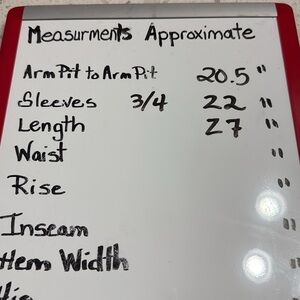 Measurments Approximate
Arm Pit to Arm Pit 20.5"
Sleeves 3/4 22"
Length 27"
Waist "
Rise "
Inseam "
Hem Width "